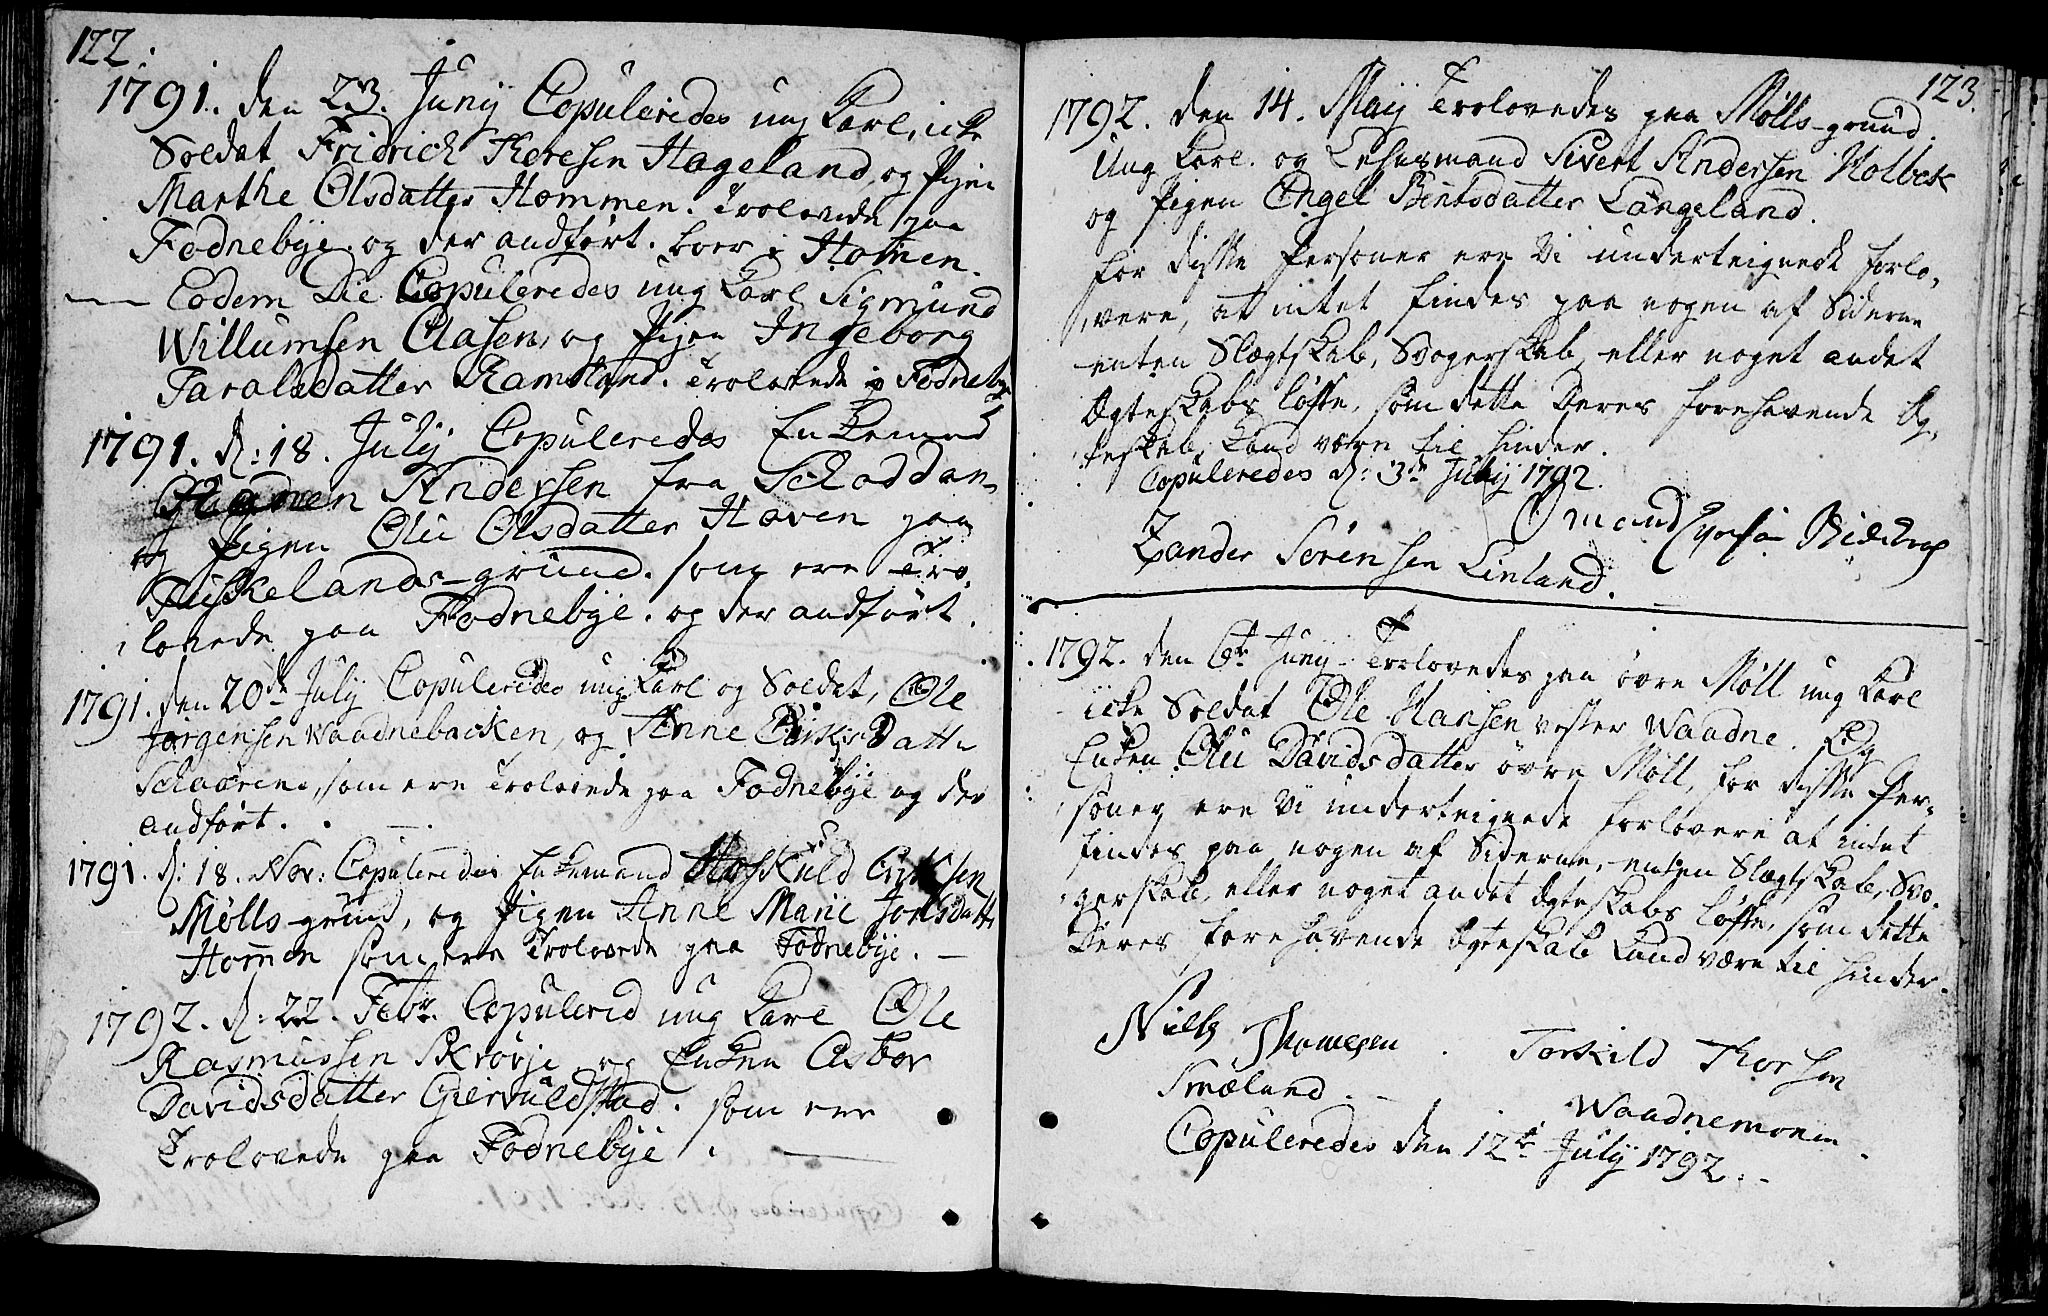 122.
1791. den 23. Junÿ Copuleredes ung Karl, icke
Soldat Fridrich Theresen Hageland, og Pigen
Marthe Olsdatter Hommen. Trolovede paa
Fodnebÿe. og der andført. boer i Homen.
Eodem Die Copuleredes ung Karl Sigmund
Willumsen Clasen, og Pigen Ingeborg
Taralsdatter Ramsland. Trolovede i Fodnebÿe
1791. d: 18. Julÿ Copuleredes Enkemand
Andersen fra Schoddan,
og Pigen Olu Olsdatter Hoven paa
Fuskelands-grund. som ere Tro,
lovede paa Fodnebÿe. og der andført.
1791. den 20de Julÿ Copuleredes ung Karl og Soldat, Ole
Jørgensen Waadnebacken, og Anne Datter
Schaarene, som ere Trolovede paa Fodnebÿe og der
andført.
1791. d: 18. Nov: Copuleredes Enkemand Hoskuld
Mølls-grund, og Pigen Anne Marie Jonsdatter
Hommen som ere Trolovede paa Fodnebÿe.
1792. d: 22. Febr. Copulered ung Karl Ole
Rasmussen Skrövje og Enken Asbor
Davidsdatter Gierwuldstad. som ere
Trolovede paa Fodnebÿe.
123.
1792. den 14. Maÿ Trolovedes paa Mølls-grund.
Ung Karl. og Lehnsmand Sivert Andersen Holbek
og Pigen Engel Bentsdatter Langeland.
for disse Personer ere Vi underteignede forlo,
vere, at intet findes paa nogen af Siderne
enten Slægtskab, Svogerskab, eller noget andet
Ægteskabs løffte, som dette Deres forehavende Æg,
teskab, kand være til hinder.
Copuleredes d: 3de Julÿ 1792.
Omund
Zander Sørensen Linland.
1792. den 6te Junÿ Trolovedes paa øvre Møll ung Karl
icke Soldat Ole Hansen vester Waadne. Og
Enken Olu Davidsdatter øvre Møll, for disse Per-
soner ere Vi underteignede forlovere at intet
findes paa nogen af Siderne, enten Slægtskab, Svo,
gerskab, eller noget andet Ægteskabs løffte, som dette
Deres forehavende Ægteskab kand være til hinder.
Niels Thomesen Torkild Thorsen
Smeland. Waadnemonen.
Copuleredes den 12te Julÿ 1792.